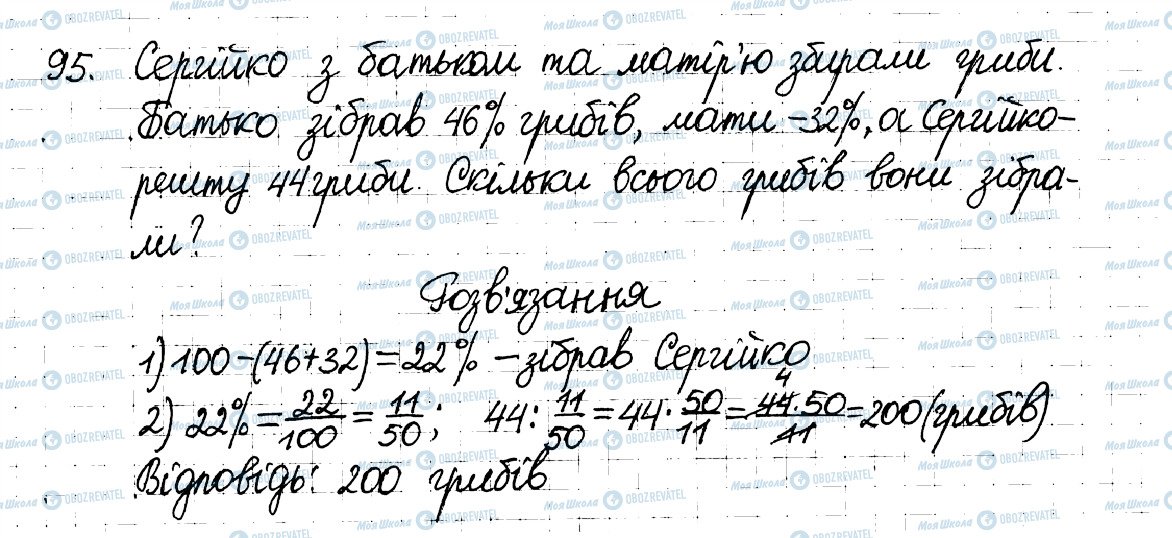 95. Сергійко з батьком та матір'ю збирали гриби.
Батько зібрав 46% грибів, мати -32%, а Сергійко-
решту 44 гриби. Скільки всього грибів вони зібра-
ли?
Розв'язання
1) 100-(46+32)=22% - зібрав Сергійко
2) 22% = 22/100 = 11/50; 44 : 11/50 = 44 · 50/11 = 44·50/11 = 200 (грибів)
4
Відповідь: 200 грибів
Моя Школа OBOZREVATEL